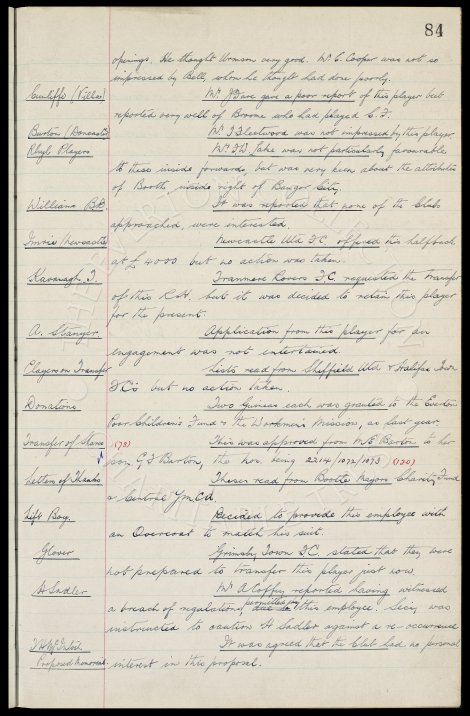 84
openings. He thought Urmson very good. Mr. C. Cooper was not so
impressed by Bell, whom he thought had done poorly.
Cunliffe (Villa) Mr. gave a poor report of this player but
reported very well of Broome who had played C.F.
Burton (Doncaster) Mr. Fleetwood was not impressed by this player.
Rhyl Players Mr. Sake was not particularly favourable
to these inside forwards, but was very keen about the attributes
of Booth, inside right of Bangor City.
Williams It was reported that none of the Clubs
approached, were interested.
Imrie (Newcastle Newcastle Utd F.C. offered this halfback
at £4000 but no action was taken.
Kavanagh, J. Tranmere Rovers F.C. requested the transfer
of this R.H. but it was decided to retain this player
for the present.
A. Stanger Application from this player for an
engagement was not entertained.
Players on Transfer Lists read from Sheffield Utd & Halifax Town
F.C's but no action taken.
Donations Two Guineas each was granted to the Everton
Poor Children's Fund & the Workmen's Mission, as last year.
Transfer of Shares (78) This was approved from M.E. Burton to her
son G.S Burton, the nos. being 2214/1072/1073 (130)
Letters of Thanks These read from Bootle Mayor's Charity Fund
& Central Y.M.C.A.
Lift Boy. Decided to provide this employee with
an Overcoat to match his suit.
Glover Grimsby Town F.C. stated that they were
not prepared to transfer this player just now.
H. Sadler Mr A. Coffey reported having witnessed
permitted by
a breach of regulations, this employee & Secy. was
instructed to caution H. Sadler against a re-occurrence
It was agreed that the Club had no personal
Proposed Memorial interest in this proposal.